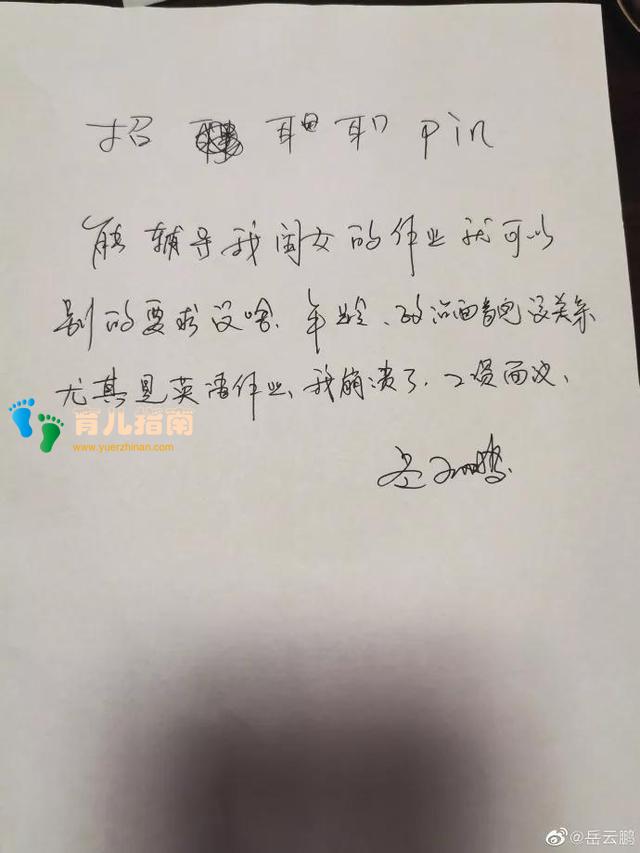 招 职 pin
能辅导我闺女的作业就可以
别的要求没啥、年龄、政治面貌没关系
尤其是英语作业、我崩溃了、工资面议、
岳云鹏
育儿指南
www.yuerzhinan.com
@岳云鹏